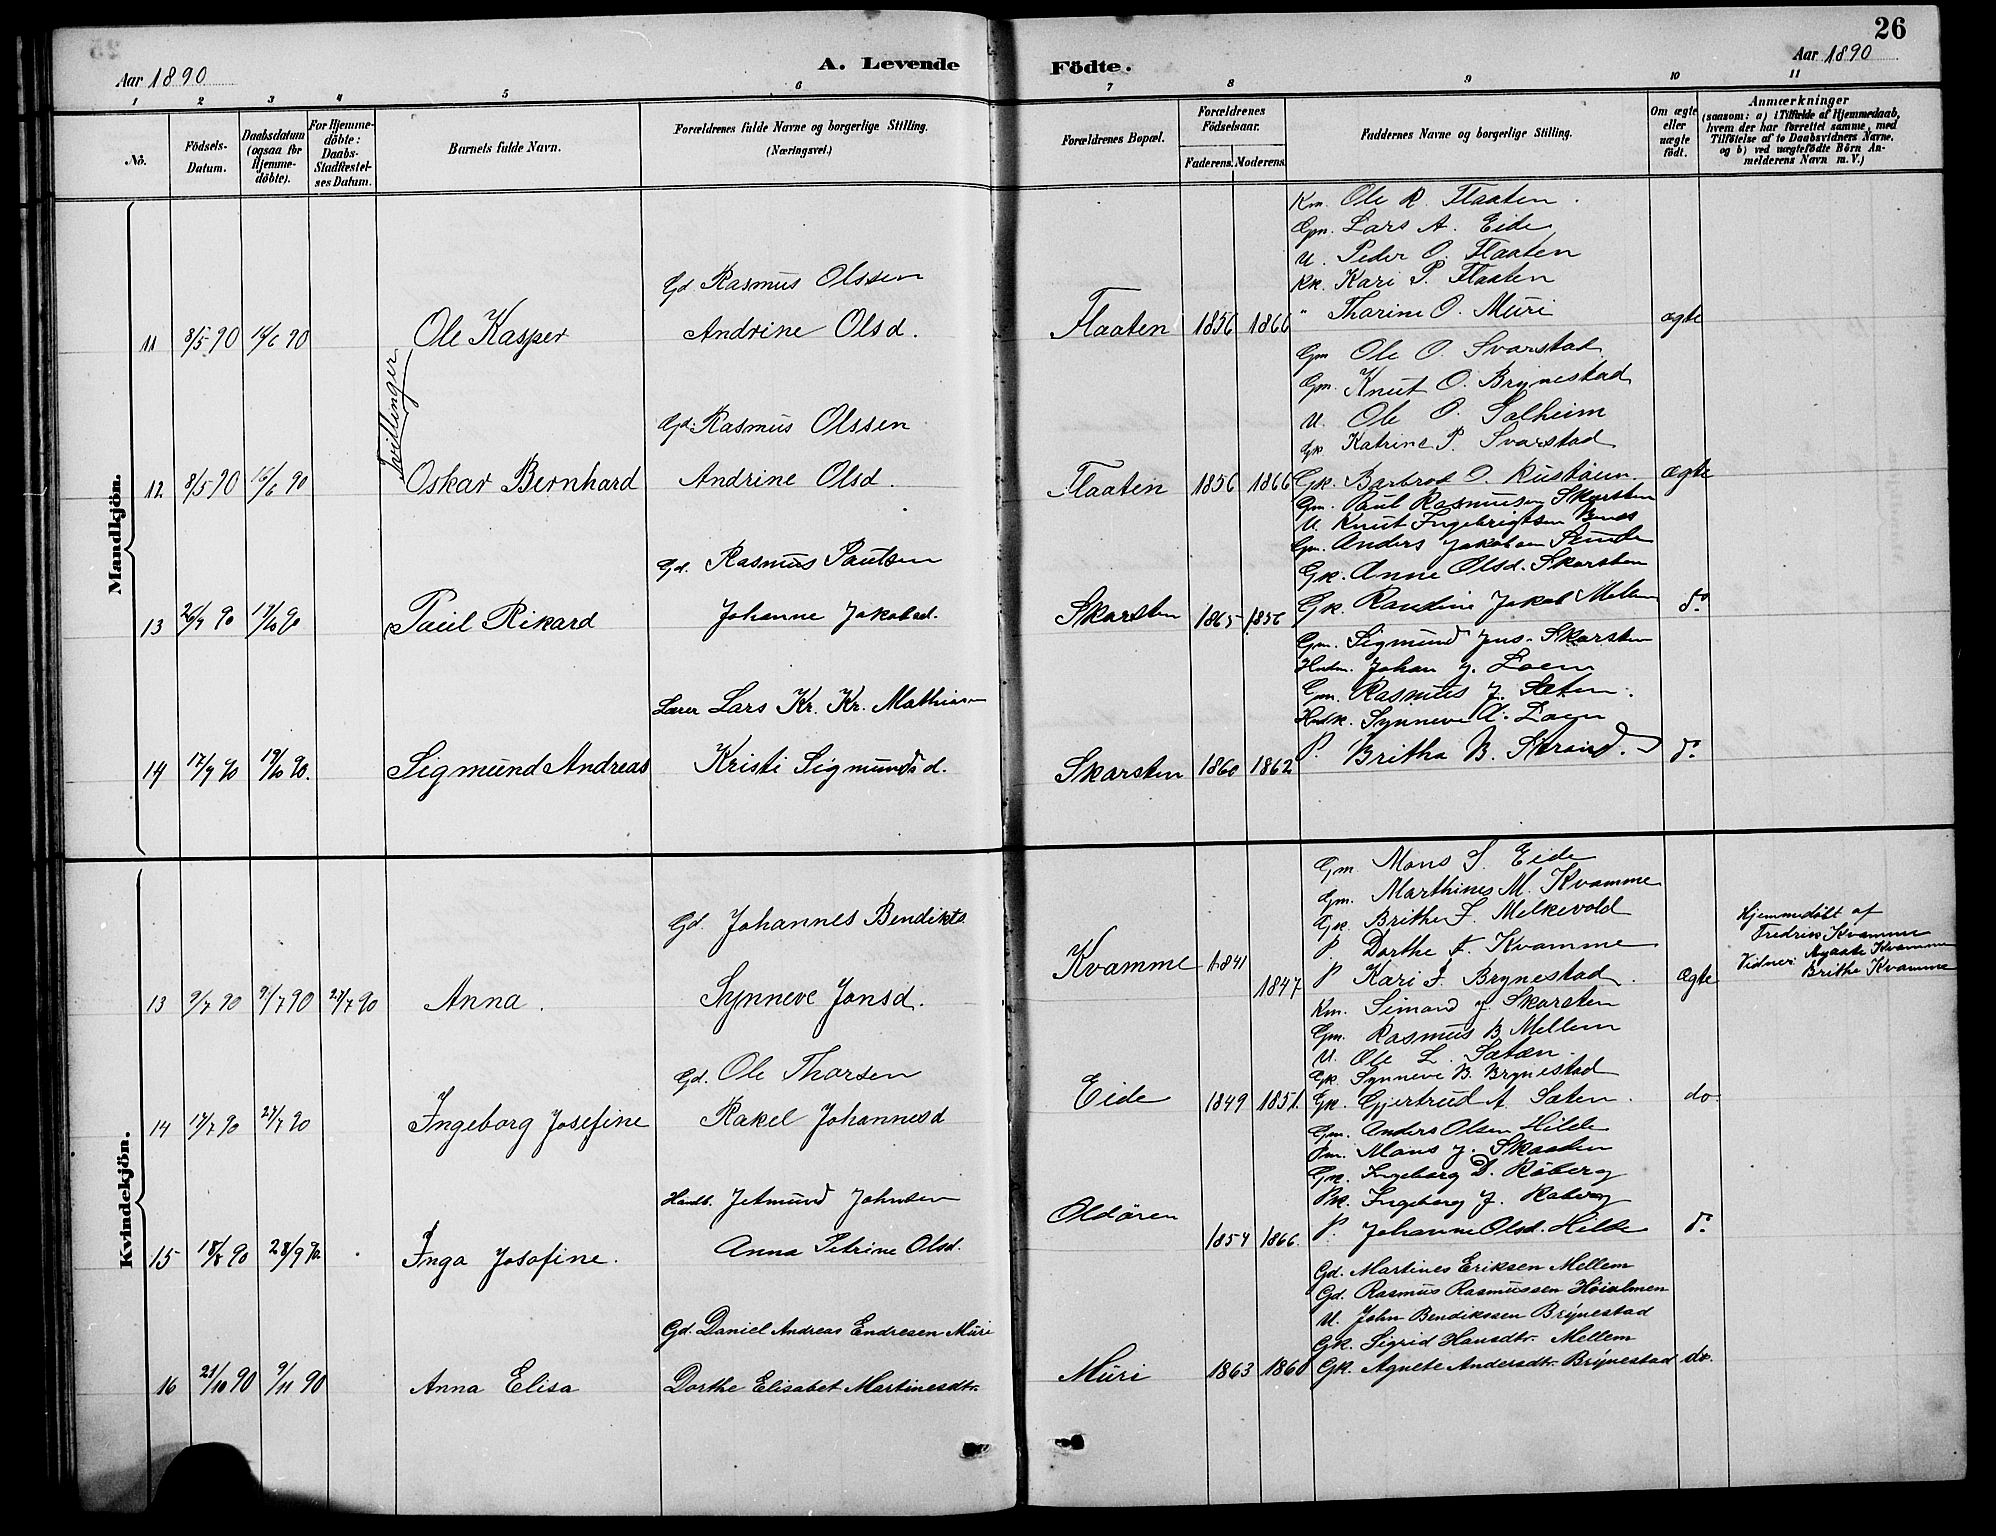 26
Aar 1890
A. Levende Födte.
Aar 1890
1 2 3 4 5 6 7 8 9 10 11
No.
Födsels-Datum.
Daabsdatum (ogsaa for Hjemme-döbte).
For Hjemme-döbte: Daabs-Stadfæstel-ses Datum.
Barnets fulde Navn.
Forældrenes fulde Navne og borgerlige Stilling. (Næringsvei.)
Forældrenes Bopæl.
Forældrenes Födselsaar.
Faderens. Moderens.
Faddernes Navne og borgerlige Stilling.
Om ægte eller uægte födt.
Anmærkninger
(saasom: a) i Tilfælde af Hjemmedaab,
hvem der har forrettet samme, med
Tilföielse af to Daabsvidners Navne,
og b) ved uægtefödte Börn An-
melderens Navn m. V.)
Mandkjön.
Km. Ole R. Flaaten
Gm. Lars A. Eide
U. Peder O. Flaaten
Kk. Kari P. Flaaten
" Tharine O. Muri
Gd Rasmus Olssen
11 8/5 90 Ole Kasper Andrine Olsd. Flaaten 1856 1866 ægte
Tvillinger
Gm Ole O. Svarstad
Gm. Knut O. Brynestad
U. Ole O. Solheim
Gk. Katrine P. Svarstad
Gk. Barbrod O. Rustöen
Gd. Rasmus Olssen
12. 8/5 90 16/6 90 Oskar Bernhard Andrine Olsd. Flaaten 1856 1866 Ægte
Gm. Paul Rasmussen Skarsten
U. Knut Ingebrigtsen
Gm. Anders Jakobsen
Gk. Anne Olsd. Skarsten
Gk. Randine Jakob Mellem
Gd. Rasmus Paulsen
13 90 Paul Rikard Johanne Jakobsd. Skarsten 1865 1856 do
Gm. Sigmund Jns. Skarsten
Johan J. Loen
Gm. Rasmus J. Sæten
Synneve A. Loen
P. Britha B. Strand.
Lærer Lars Kr. Kr. Mathiasen
14 17/9 90 19/10 90. Sigmund Andreas Kristi Sigmundsd. Skarsten 1860 1862 do
Kvindekjön.
Gm. Mons S. Eide
Gm. Marthines M. Kvamme
Gk. Brithe J. Melkevold
P. Dorthe Kvamme
P Kari J. Brynestad
Gd. Johannes Bendikts
13 9/7 90 9/7 90 27/7 90 Anna. Synneve Jonsd. Kvamme 1841 1847 Ægte
Hjemmedöbt af
Fredrik Kvamme
Vidner: Agaate Kvamme
Brithe Kvamme
Km. Simond J. Skarsten
Gm. Rasmus B Mellem
U. Ole L. Sæten.
Gk. Synneve B. Brynestad
Gk. Gjertrud A. Sæten.
Gd. Ole Thorsen
14 17/7 90 27/7 90 Ingeborg Josefine Rakel Johannesd Eide 1849 1851. do
Gm. Anders Olsen Hilde
Mons J. Skaaden
Gk. Ingeborg D. Röberg
Ingeborg J.
P. Johanne Olsd. Hilde
Handb. Jetmund Johnsen
15 18/8 90 28/9 90 Inga Josofine. Anna Petrine Olsd. Oldören 1854 1866. do
Gd. Martines Eriksen Mellem
Gd. Rasmus Rasmussen Höialmen
U. John Bendikssen Brynestad
Gk. Sigrid Hansdtr. Mellem
Gk. Agnete Andersdtr. Brynestad
Gd. Daniel Andreas Endresen Muri
16 21/10 90 9/11 90 Anna Elisa Dorthe Elisabet Martinesdtr. Muri 1863 1860 do.